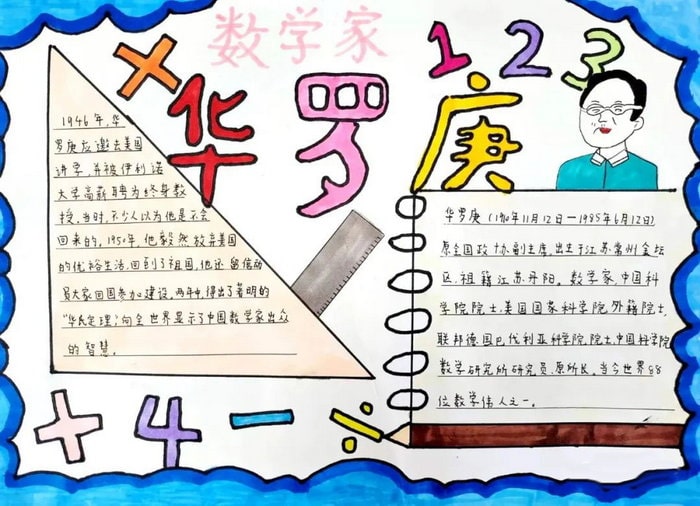 数学家
× 1 2 3
华罗庚
1946年,华
罗庚应邀去美国
讲学,并被伊利诺
大学高薪聘为终身教
授,当时,不少人以为他是不会
回来的,1950年,他毅然放弃美国
的优裕生活,回到了祖国,他还留信动
员大家回国参加建设,两年中,得出了著明的
“华氏定理”,向全世界显示了中国数学家出众
的智慧。
华罗庚(1910年11月12日—1985年6月12日)
原全国政协副主席,出生于江苏常州金坛
区,祖籍江苏丹阳。数学家,中国科
学院院士,美国国家科学院外籍院士,
联邦德国巴伐利亚科学院院士,中国科学院
数学研究所研究员、原所长,当今世界88
位数学伟人之一。
+ 4 − ÷